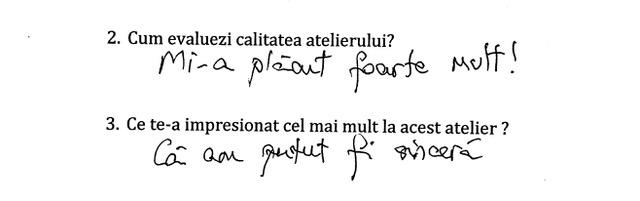 2. Cum evaluezi calitatea atelierului?
Mi-a plăcut foarte mult!
3. Ce te-a impresionat cel mai mult la acest atelier ?
Că am putut fi sinceră